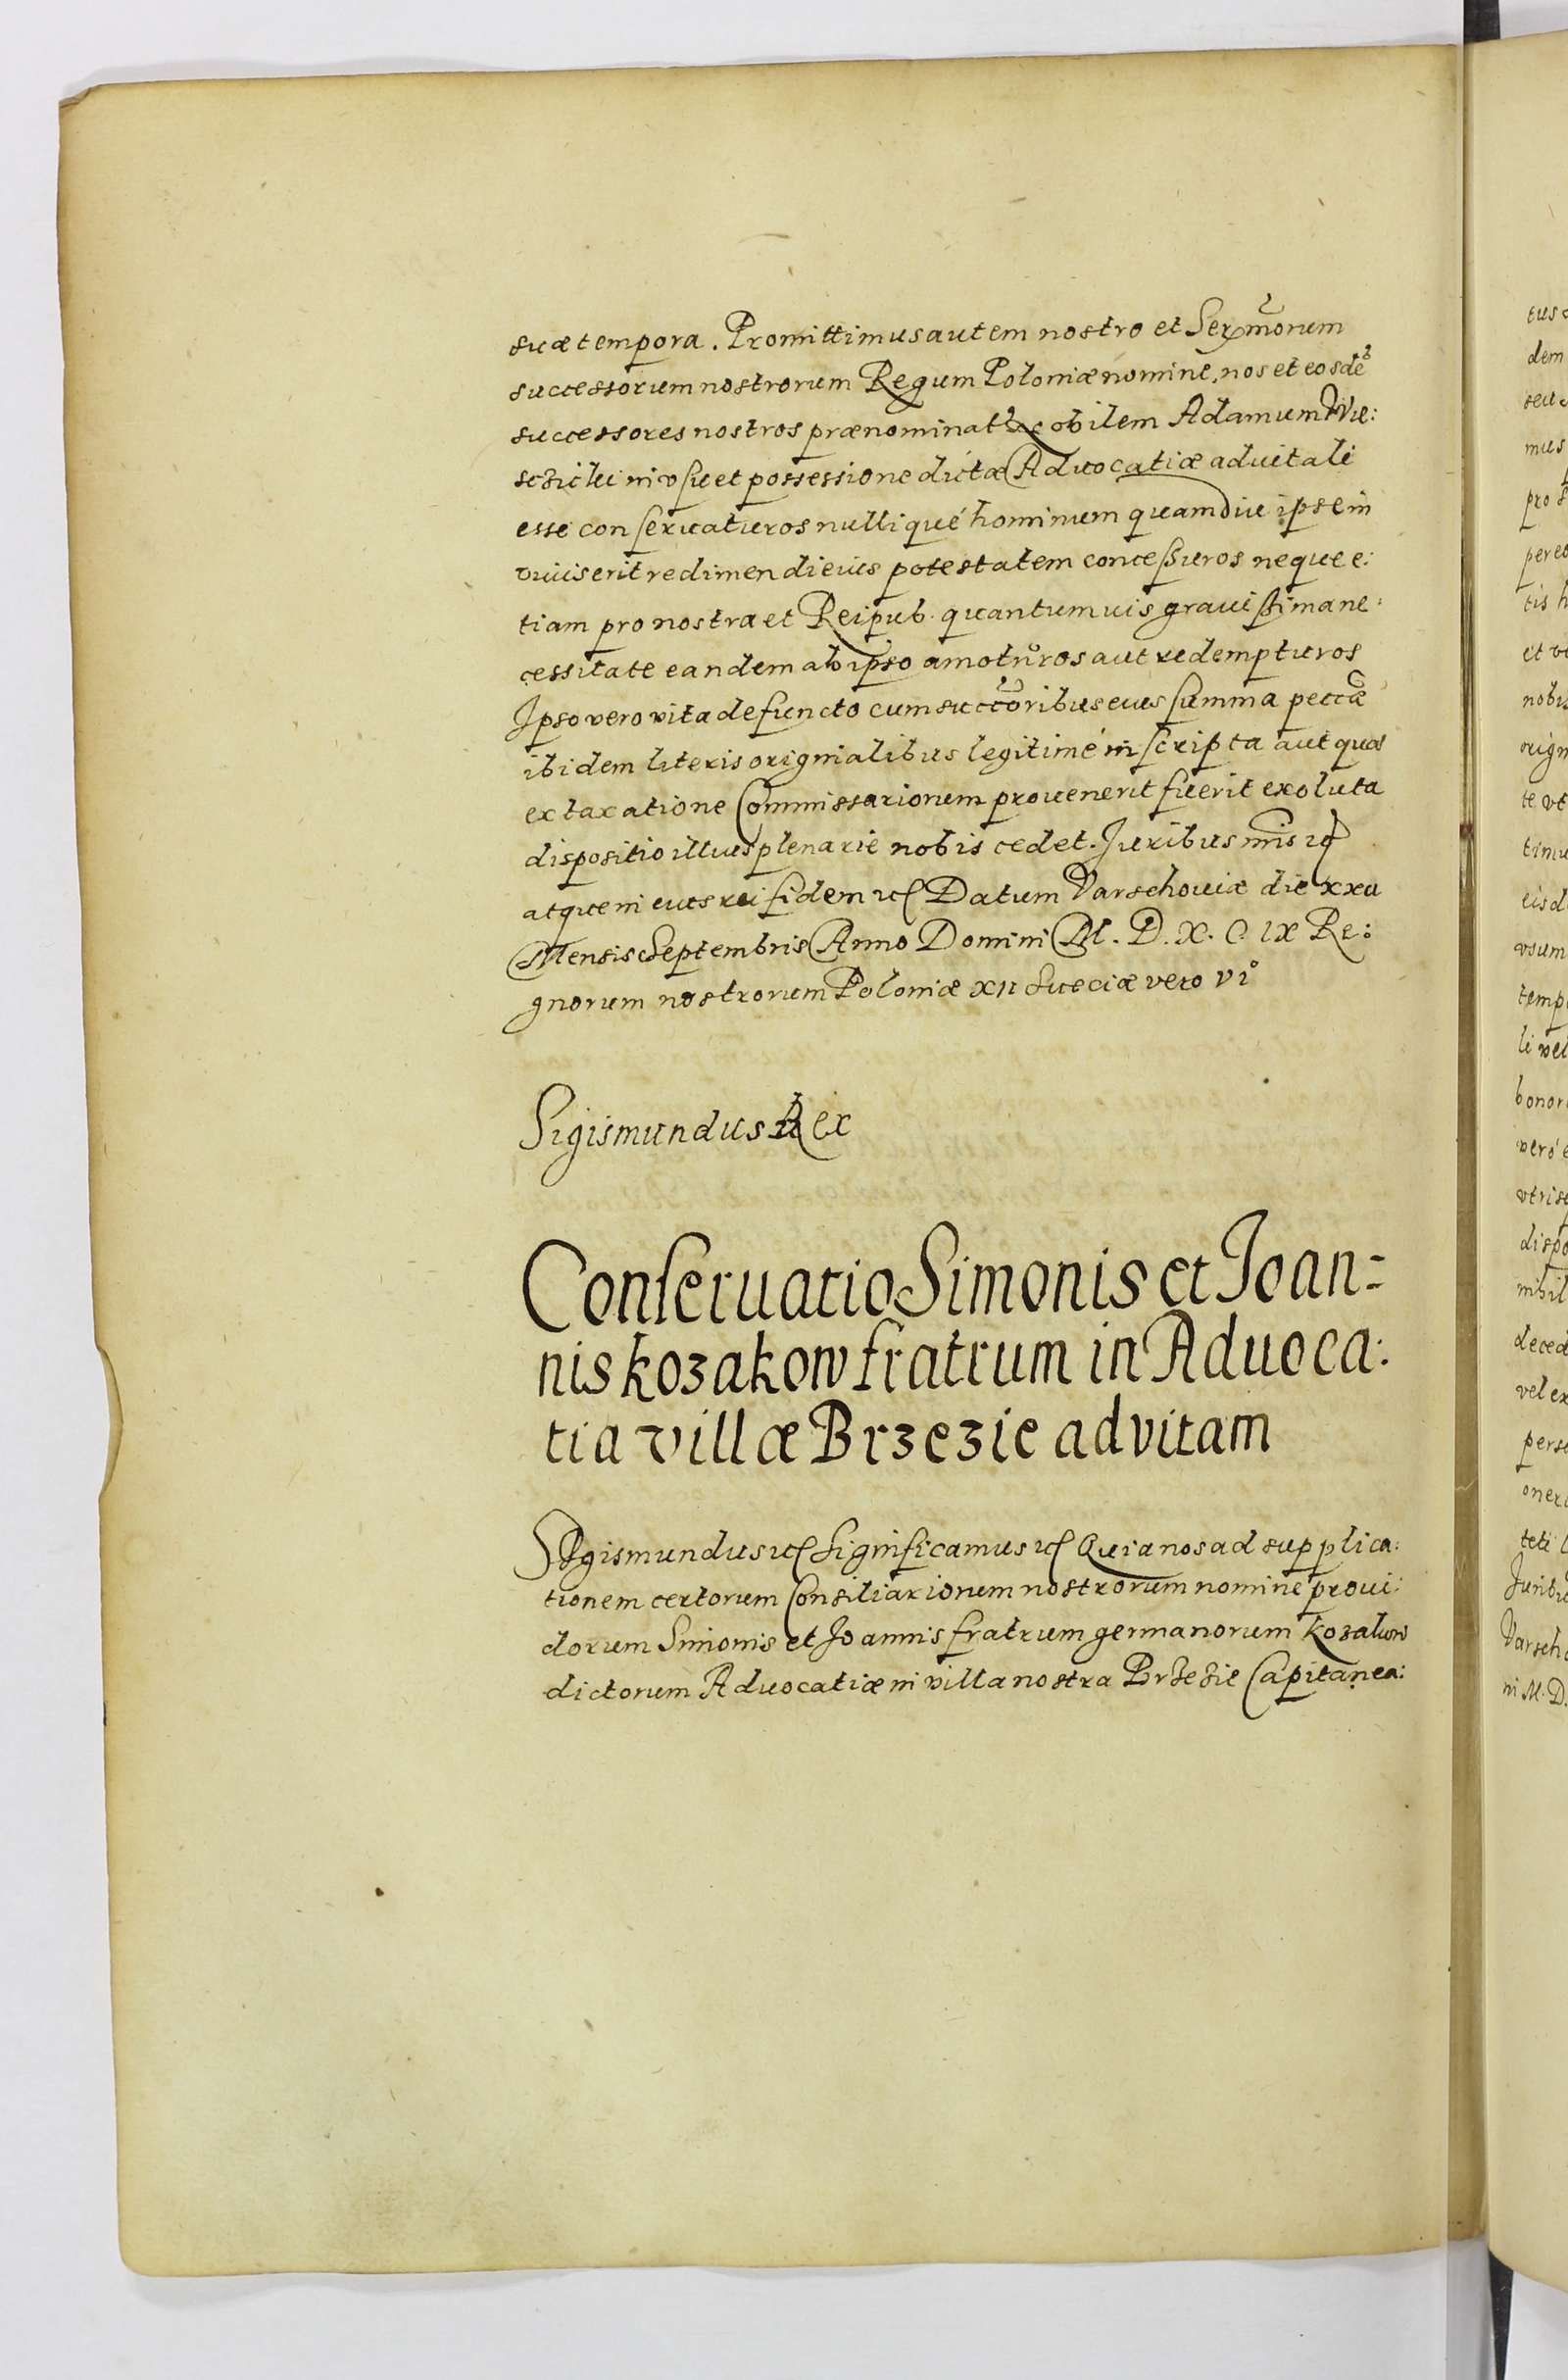 suæ tempora. Promittimus autem nostro et Serm̃orum
successorum nostrorum Regum Poloniæ nomine, nos et eosdē
successores nostros prænominat obilem Adamum
in vsu et possessione dictæ Aduocatiæ aduitali
esse conseruaturos nullique hominum quamdiu ipse in
viuis erit redimendi eius potestatem concessuros neque e:
tiam pro nostra et Reipub. quantumuis grauissima ne:
cessitate eandem ab ipso amoturos aut redempturos
Ipso vero vita defuncto cum succ̃oribus eius summa pecc̃æ
ibidem literis originalibus legitimé inscripta aut quæ
ex taxatione Commissariorum prouenerit fuerit exoluta
dispositio illius plenarie nobis cedet. Juribus nr̃is
atque in eius rei fidem etc Datum Varschouiæ die
Mensis Septembris Anno Domini M. D. X. C. IX Re:
gnorum nostrorum Poloniæ XII Sueciæ vero VI°
Sigismundus Rex
Conseruatio Simonis et Joan=
nis kozakow fratrum in Aduoca:
tia villæ Brzezie ad vitam
Sigismundus etc Significamus etc Quia nos ad supplica:
tionem certorum Consiliariorum nostrorum nomine proui:
dorum Simonis et Joannis fratrum germanorum
dictorum Aduocatiæ in villa nostra Brzezie Capitanea:
tus
dem
mus
pro
tis
nobis
eis d
vsum
temp
li vel
vero
dispo
nihil
deced
vel ex
perso
oner
Juribu
Varscho
ni M. D.